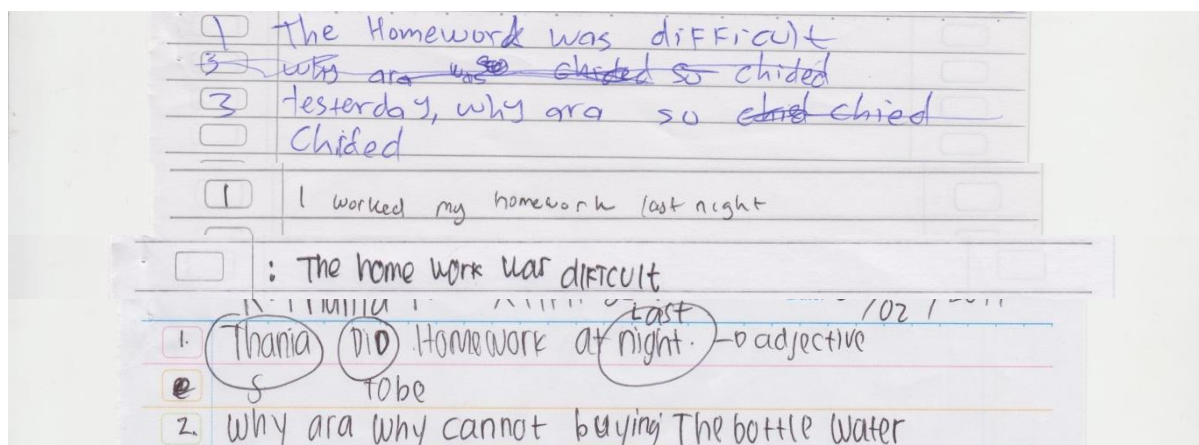 1 The Homework was difficult
3 why ara was so chided so chided
3 Yesterday, why ara so chied chied
Chided
1 I worked my homework last night
: The home work was difficult
Last /02/
1. Thania DiD Homework at night. → adjective
S tobe
2. why ara why cannot buying The bottle water